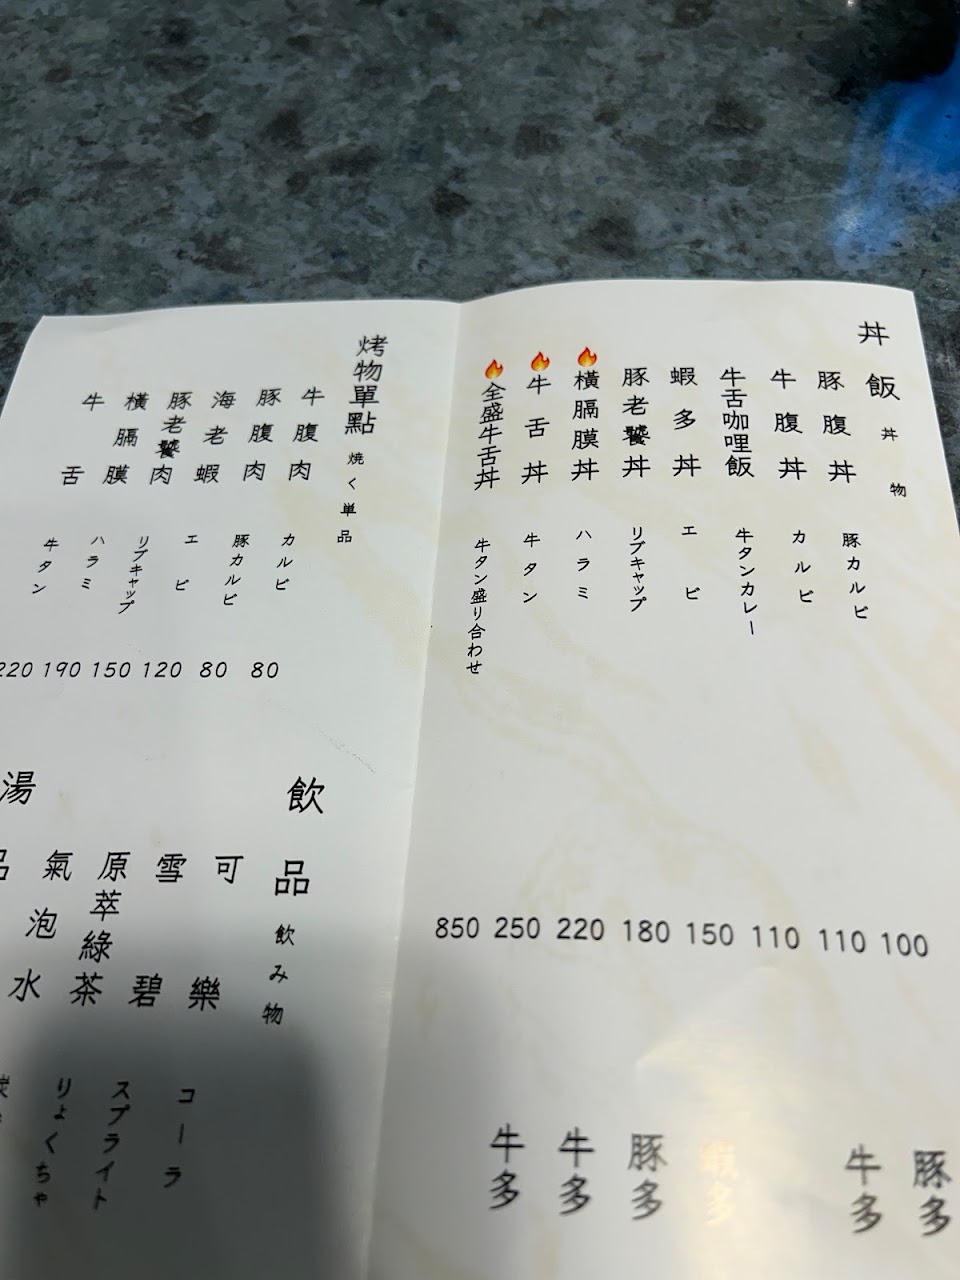 丼飯 丼物
豚腹丼 豚カルビ 100
牛腹丼 カルビ 110
牛舌咖哩飯 牛タンカレー 110
蝦多丼 エビ 150
豚老饕丼 リブキャップ 180
橫膈膜丼 ハラミ 220
牛舌丼 牛タン 250
全盛牛舌丼 牛タン盛り合わせ 850
豚多
牛多
蝦多
豚多
牛多
牛多
烤物單點 焼く単品
牛腹肉 カルビ 80
豚腹肉 豚カルビ 80
海老蝦 エビ 120
豚老饕肉 リブキャップ 150
橫膈膜 ハラミ 190
牛舌 牛タン 220
飲品 飲み物
可樂 コーラ
雪碧 スプライト
原萃綠茶 りょくちゃ
氣泡水
湯品